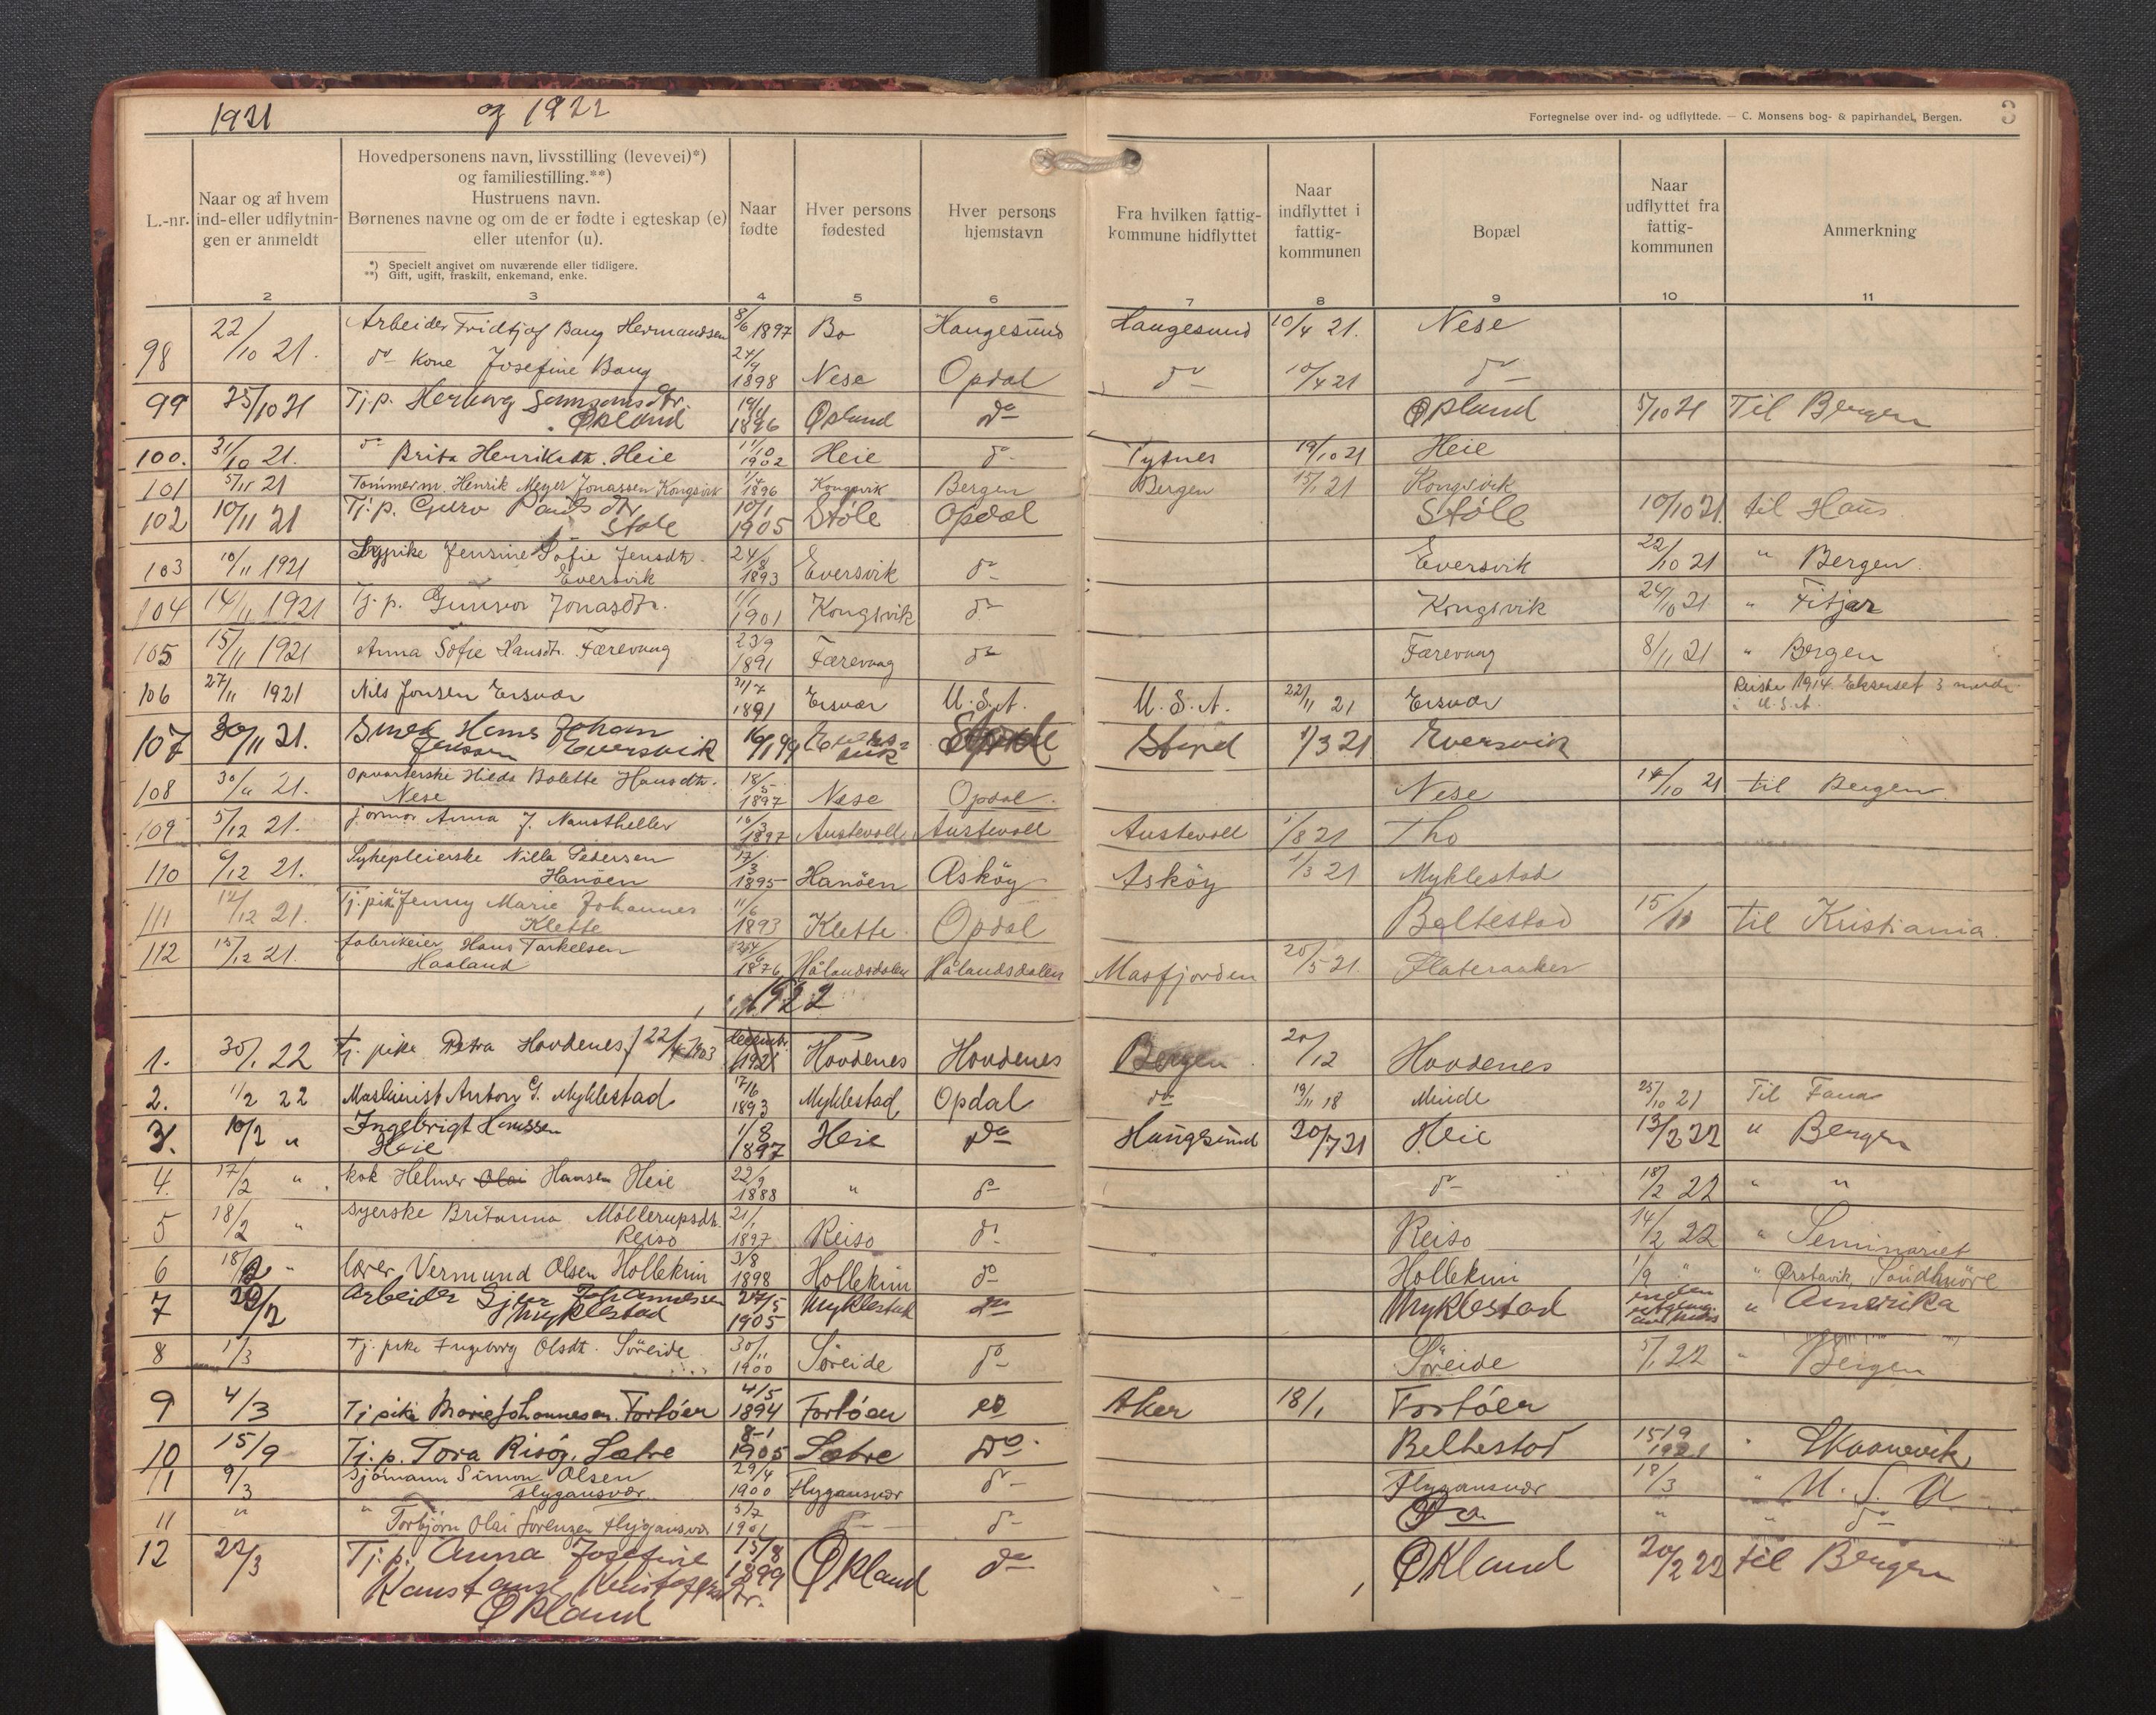 1921 og 1922
Fortegnelse over ind- og udflyttede. — C. Monsens bog- & papirhandel, Bergen. 3
L.-nr.
Naar og af hvem
ind- eller udflytnin-
gen er anmeldt
Hovedpersonens navn, livsstilling (levevei)*)
og familiestilling.**)
Hustruens navn.
Børnenes navne og om de er fødte i egteskap (e)
eller utenfor (u).
*) Specielt angivet om nuværende eller tidligere.
**) Gift, ugift, fraskilt, enkemand, enke.
Naar
fødte
Hver persons
fødested
Hver persons
hjemstavn
Fra hvilken fattig-
kommune hidflyttet
Naar
indflyttet i
fattig-
kommunen
Bopæl
Naar
udflyttet fra
fattig-
kommunen
Anmerkning
2 3 4 5 6 7 8 9 10 11
98 22/10 21. Arbeider Fridtjof Bang Hermandsen 8/6 1897 Bo Haugesund Haugesund 10/4 21. Nese
do Kone Josefine Bang 24/9 1898 Nese Opdal do 10/4 21 do
99 25/10 21 Tj.p. Herborg Samsonsdtr. Økland 19/11 1896 Økland do Økland 5/10 21 Til Bergen
100. 31/10 21. do Brita Henriksdtr. Heie 11/10 1902 Heie do Tysnes 19/10 21 Heie
101 5/11 21 Tømmerm. Henrik Meyer Jonassen Kongsvik 1/4 1896 Kongsvik Bergen Bergen 15/1 21 Kongsvik
102 10/11 21 Tj.p. Guro Paulsdtr. Støle 10/1 1905 Støle Opdal Støle 10/10 21. til Haus
103 10/11 1921 Sypike Jensine Sofie Jensdtr. Eversvik 24/8 1893 Eversvik do Eversvik 22/10 21 " Bergen.
104 14/11 1921 Tj.p. Gunvor Jonasdtr. 1/1 1901 Kongsvik do Kongsvik 24/10 21. " Fitjar
105 15/11 1921 Anna Sofie Hansdtr. Færevaag 23/9 1891 Færevaag do Færevaag 8/11 21 " Bergen
106 27/11 1921 Nils Jonsen Ersvær 31/7 1891 Ersvær U.S.A. U.S.A. 22/11 21 Ersvær Reiste 1914. Ekserset 3 mndr. i U.S.A.
107 30/11 21. Smed Hans Johan Jensen Eversvik 16/1 99 Eversvik Stord 1/3 21 Eversvik
108 30/11 21. Opvarterske Hilda Bolette Hansdtr. Nese 18/5 1897 Nese Opdal. Nese 14/10 21 til Bergen.
109 5/12 21. Jormor Anna J. Naustheller 16/3 1897 Austevoll Austevoll Austevoll 1/8 21 Tho
110 6/12 21. Sykepleierske Nilla Pedersen Hanöen 17/3 1895 Hanöen Asköy Asköy 1/3 21 Myklestad
111 12/12 21. Tj.pike Jenny Marie Johannes Klette 11/6 1893 Klette. Opdal Beltestad 15/11 til Kristiania.
112 15/12 21. fabrikeier Hans Tarkelsen Haaland 1876 Hålandsdalen Hålandsdalen Masfjorden 20/5 21. Flateraaker
1922
1. 30/1 22 Tj. pike Petra Hovdenes, 22/4 1903 1921 Hovdenes Hovdenes Bergen 20/12 Hovdenes
2. 1/2 22 Maskinist Anton G. Myklestad 17/6 1893 Myklestad Opdal do 19/11 18 Minde 25/10 21 Til Fana
3. 10/2 " Ingebrigt Hanssen Heie 1/8 1897 Heie do Haugesund 20/7 21 Heie 13/2 22 " Bergen
4. 17/2 " kok Helmer Olai Hansen Heie 22/9 1888 " do do 18/2 22 " "
5 18/2 " syerske Britanna Möllerupsdtr. Reiso 21/1 1897 Reiso do Reiso 14/2 22 " Seminariet
6 18/2 " lærer Vermund Olsen Hollekim 3/8 1898 Hollekim do Hollekim 1/9 " " Ørstavik, Söndmöre
7 28/2 Arbeider Sjur Johannessen Myklestad 27/5 1905 Myklestad do Myklestad " Amerika
8 1/3 Tj. pike Ingeborg Olsdt. Söreide 30/11 1900 Söreide do Söreide 5/1 22 " Bergen
9 4/3 Tj pike Marie Johannesen. Fortöer 4/5 1894 Fortöer do Aker 18/1 Fortöer
10 15/9 Tj.p. Tora Risöy. Sætre 8-1 1905 Sætre Do. Beltestad 15/9 1921 " Skaanevik
11 9/3 Sjömann Simon Olsen Flygansvær 29/4 1900 Flygansvær do Flygansvær 18/3 " U.S.A
11 " " Torbjörn Olai Sörensen Flygansvær 5/7 1901 do do Do " " do
12 22/3 Tj.p. Anna Josefine Konstanse Kristoffersdtr. Økland 15/8 1899 Økland do Økland 20/2 22 til Bergen